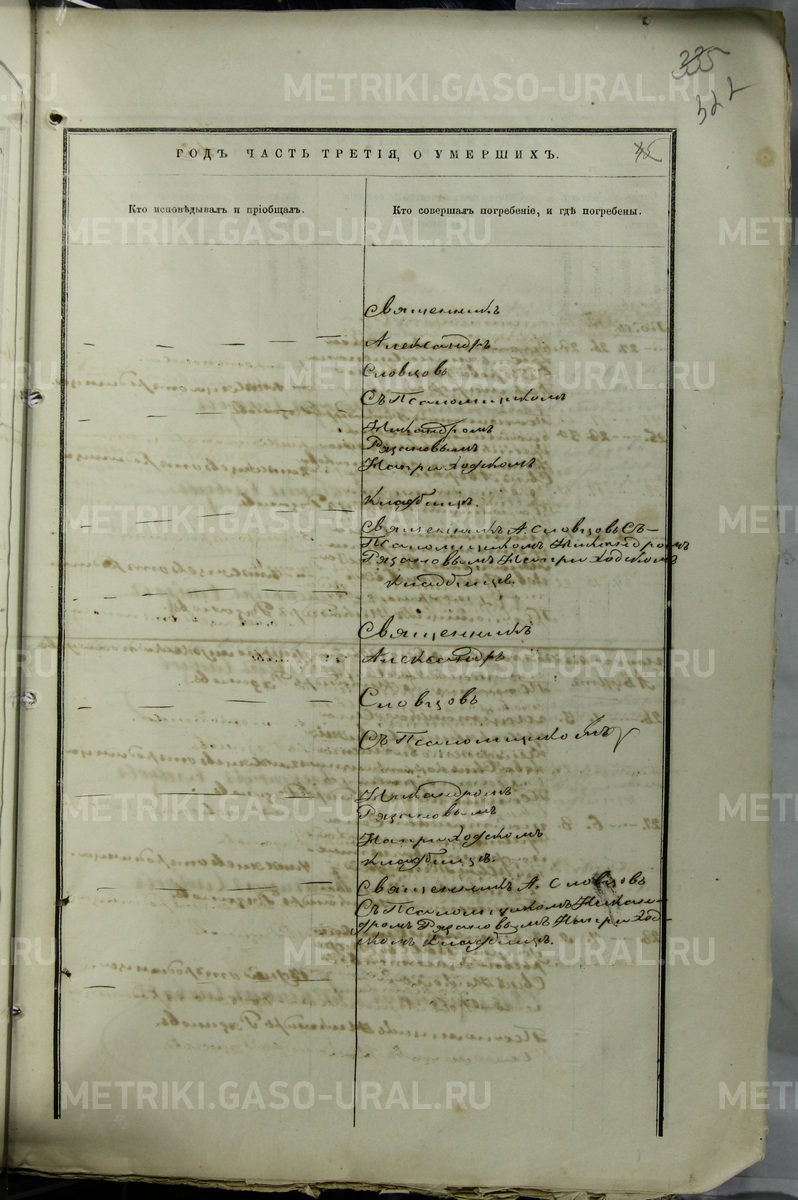 METRIKI.GASO-URAL.RU
322
ГОДЪ ЧАСТЬ ТРЕТІЯ, О УМЕРШИХЪ.
Кто исповѣдывалъ и пріобщалъ.
Кто совершалъ погребеніе, и гдѣ погребены.
Священникъ
Александръ
Словцовъ
Съ Псаломщикомъ
Никандромъ
Рязановымъ
На приходскомъ
Кладбищѣ.
Священникъ А Словцовъ Съ-
Псаломщикомъ Никандромъ
Рязановымъ На приходскомъ
Кладбищѣ.
Священникъ
Александръ
Словцовъ
Съ Псаломщикомъ
Никандромъ
Рязановымъ
На приходскомъ
Кладбищѣ.
Священникъ А. Словцовъ
Съ Псаломщикомъ Никан-
дромъ Рязановымъ На приход-
скомъ Кладбищѣ.